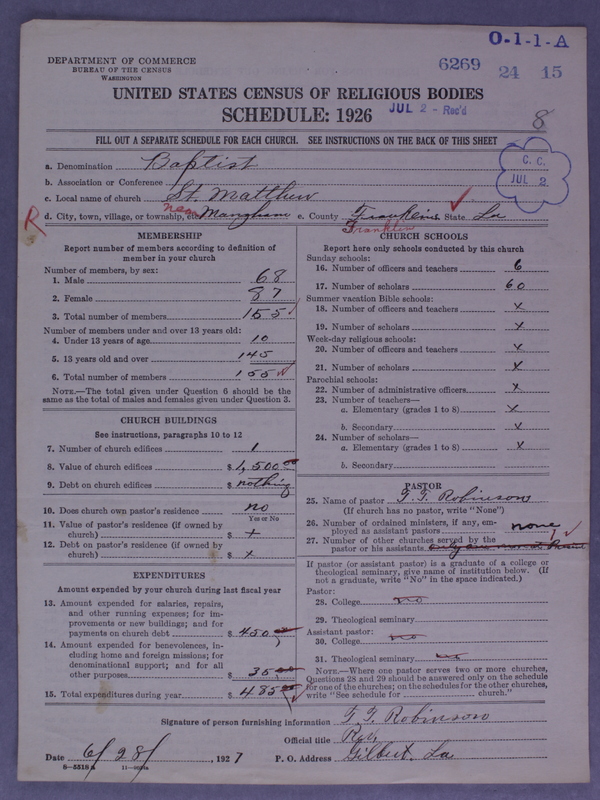 O-1-1-A
DEPARTMENT OF COMMERCE
BUREAU OF THE CENSUS
WASHINGTON
6269 24 15
UNITED STATES CENSUS OF RELIGIOUS BODIES
SCHEDULE: 1926
JUL 2 - Rec'd
8
FILL OUT A SEPARATE SCHEDULE FOR EACH CHURCH. SEE INSTRUCTIONS ON THE BACK OF THIS SHEET
C. C.
JUL 2
a. Denomination Baptist
b. Association or Conference
c. Local name of church St. Matthew
d. City, town, village, or township, etc. near Mangham e. County Franklin State La
R
Franklin
MEMBERSHIP
Report number of members according to definition of
member in your church
Number of members, by sex:
1. Male 68
2. Female 87
3. Total number of members 155
Number of members under and over 13 years old:
4. Under 13 years of age 10
5. 13 years old and over 145
6. Total number of members 155
NOTE.—The total given under Question 6 should be the
same as the total of males and females given under Question 3.
CHURCH BUILDINGS
See instructions, paragraphs 10 to 12
7. Number of church edifices 1
8. Value of church edifices $1,500.00
9. Debt on church edifices $ nothing
10. Does church own pastor's residence no
Yes or No
11. Value of pastor's residence (if owned by
church) $ x
12. Debt on pastor's residence (if owned by
church) $ x
EXPENDITURES
Amount expended by your church during last fiscal year
13. Amount expended for salaries, repairs,
and other running expenses; for im-
provements or new buildings; and for
payments on church debt $ 450.00
14. Amount expended for benevolences, in-
cluding home and foreign missions; for
denominational support; and for all
other purposes $ 35.00
15. Total expenditures during year $ 485.00
CHURCH SCHOOLS
Report here only schools conducted by this church
Sunday schools:
16. Number of officers and teachers 6
17. Number of scholars 60
Summer vacation Bible schools:
18. Number of officers and teachers x
19. Number of scholars x
Week-day religious schools:
20. Number of officers and teachers x
21. Number of scholars x
Parochial schools:
22. Number of administrative officers x
23. Number of teachers—
a. Elementary (grades 1 to 8) x
b. Secondary x
24. Number of scholars—
a. Elementary (grades 1 to 8) x
b. Secondary
PASTOR
25. Name of pastor Robinson
(If church has no pastor, write "None")
26. Number of ordained ministers, if any, em-
ployed as assistant pastors none
27. Number of other churches served by the
pastor or his assistants
If pastor (or assistant pastor) is a graduate of a college or
theological seminary, give name of institution below. (If
not a graduate, write "No" in the space indicated.)
Pastor:
28. College no
29. Theological seminary
Assistant pastor:
30. College no
31. Theological seminary no
NOTE.—Where one pastor serves two or more churches,
Questions 28 and 29 should be answered only on the schedule
for one of the churches; on the schedules for the other churches,
write "See schedule for church."
Signature of person furnishing information Robinson
Official title Rev.
Date 6/28/, 1927 P. O. Address Gilbert, La
8—5518a